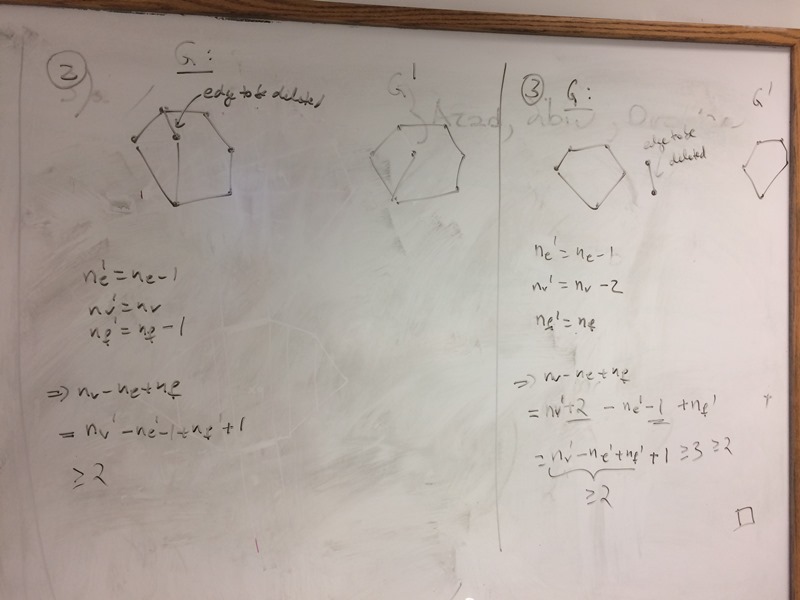 ② G:
edge to be deleted
G'
ne' = ne - 1
nv' = nv
nf' = nf - 1
=> nv - ne + nf
= nv' - ne' - 1 + nf' + 1
≥ 2
③ G:
G'
edge to be
deleted
ne' = ne - 1
nv' = nv - 2
nf' = nf
=> nv - ne + nf
= nv' + 2 - ne' - 1 + nf'
= nv' - ne' + nf' + 1 ≥ 3 ≥ 2
≥ 2